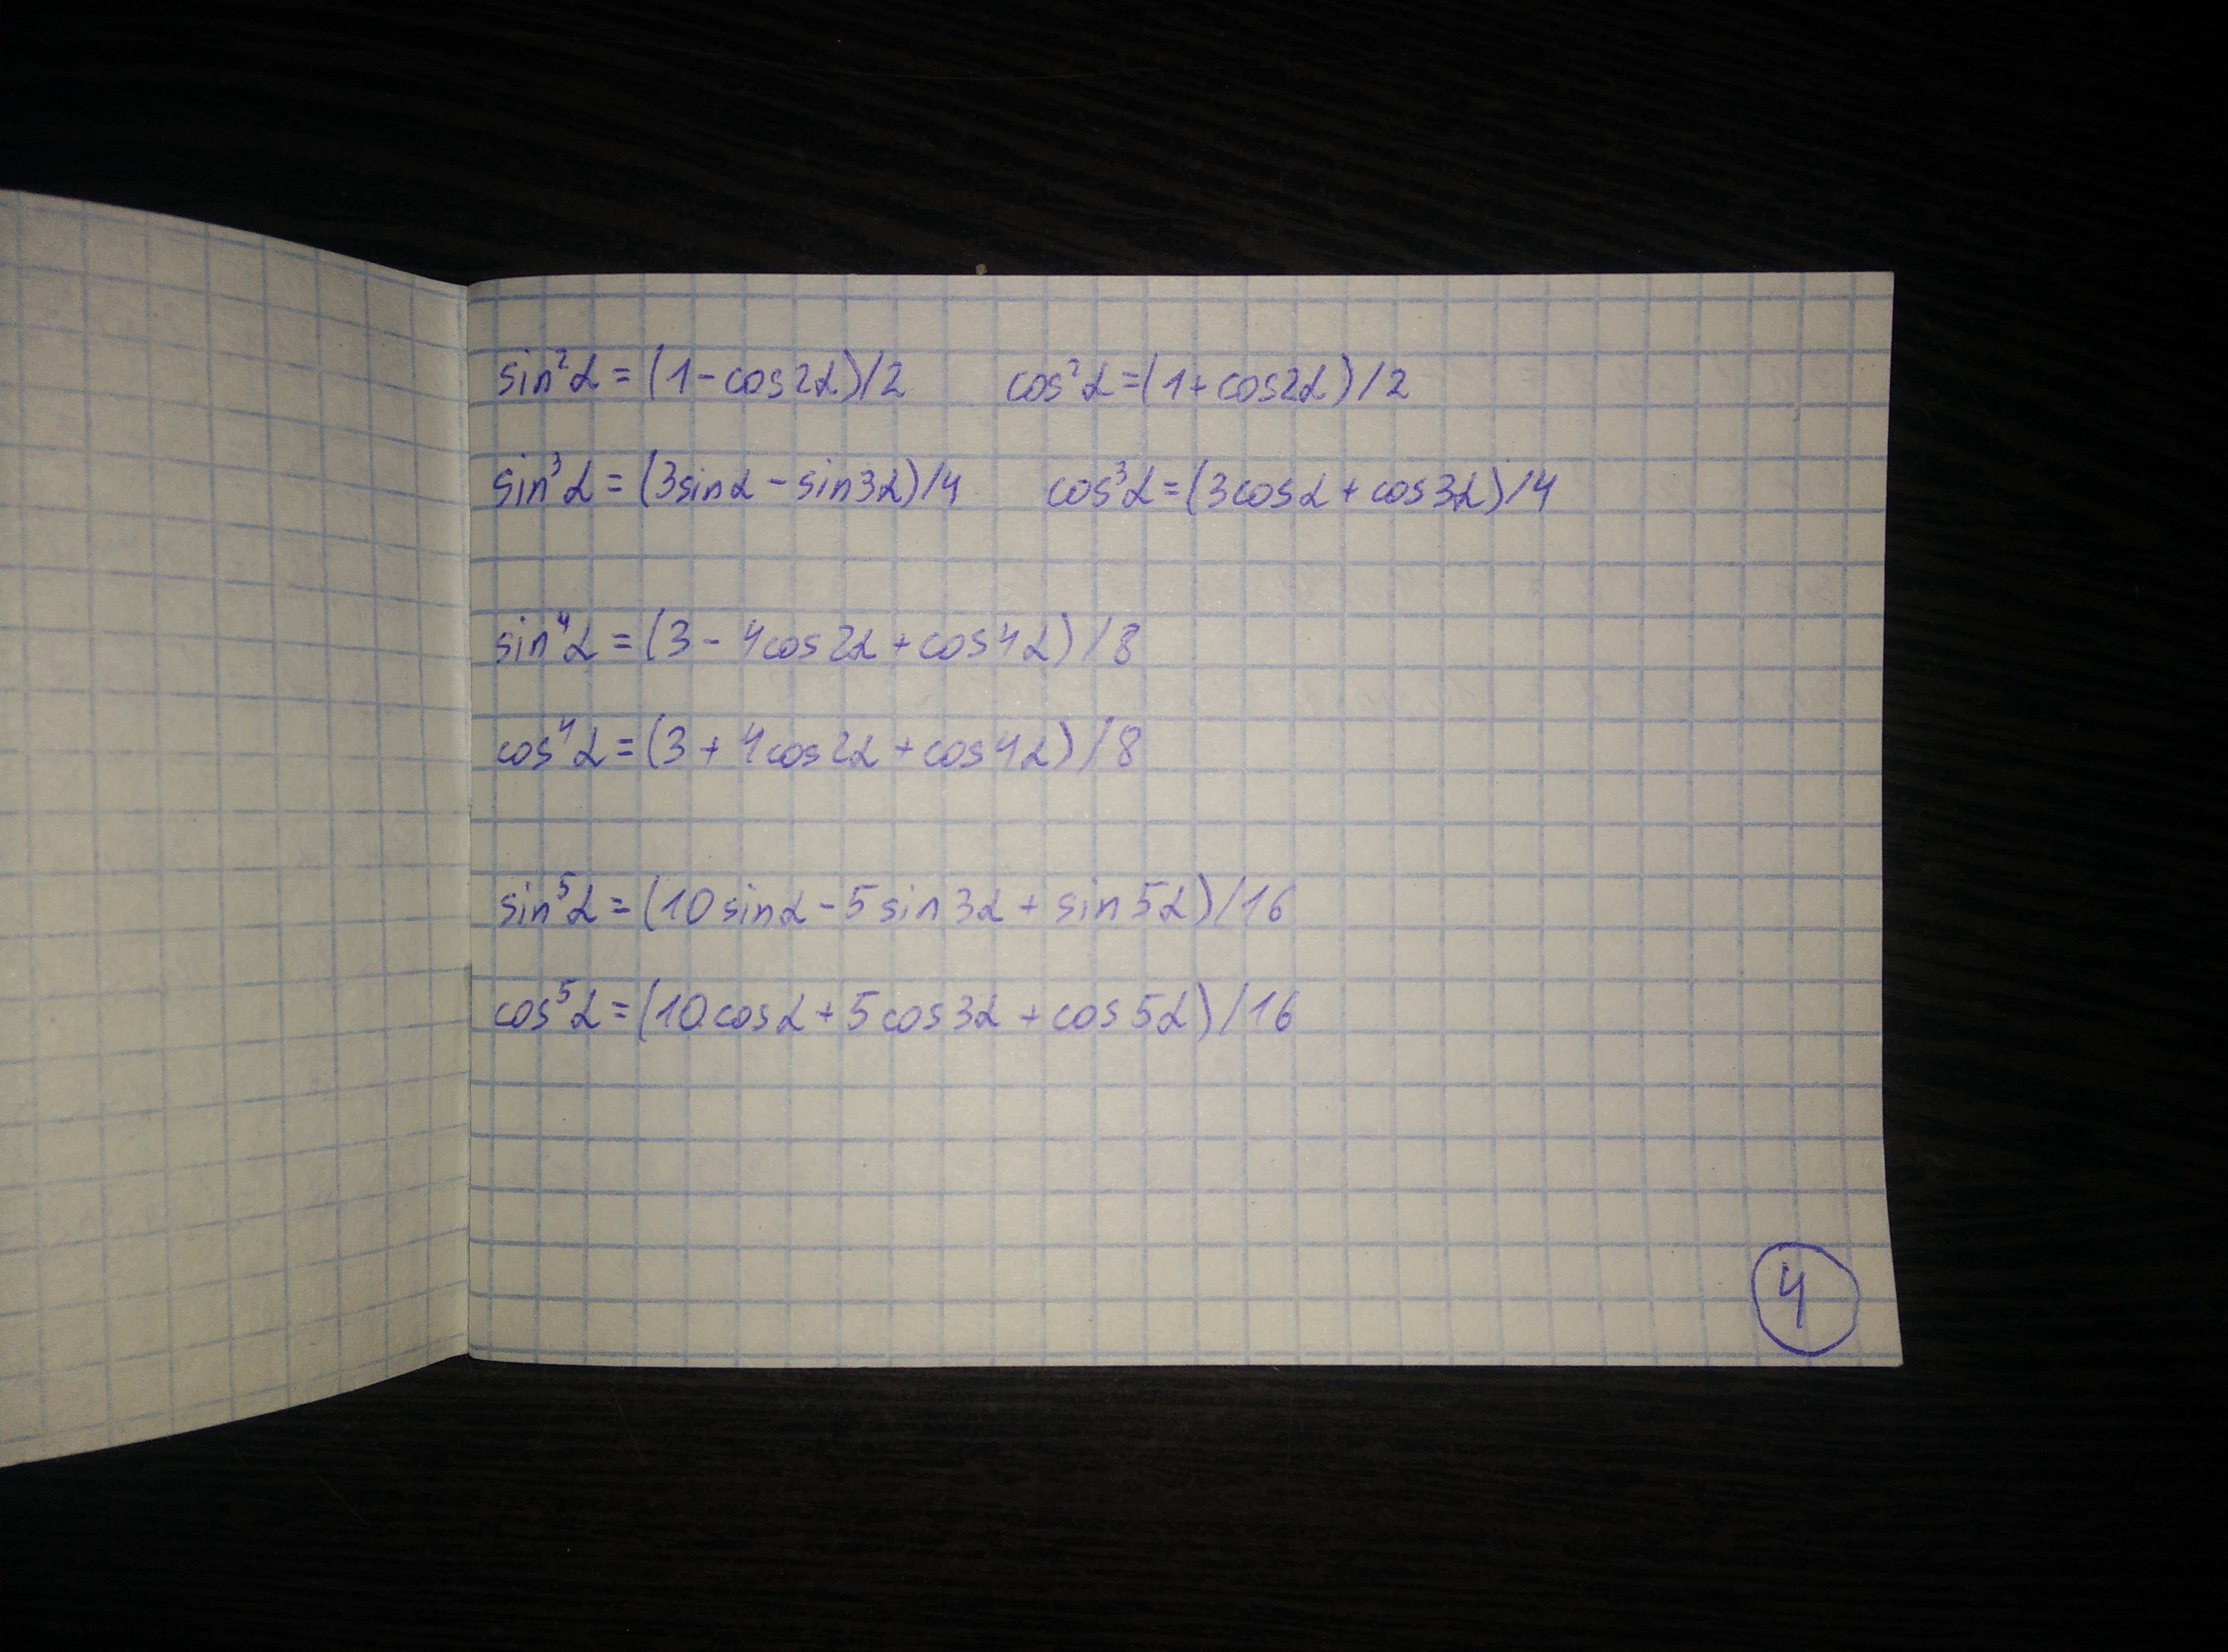 sin²α = (1 - cos2α)/2 cos²α = (1 + cos2α)/2
sin³α = (3sinα - sin3α)/4 cos³α = (3cosα + cos3α)/4
sin⁴α = (3 - 4cos2α + cos4α)/8
cos⁴α = (3 + 4cos2α + cos4α)/8
sin⁵α = (10sinα - 5sin3α + sin5α)/16
cos⁵α = (10cosα + 5cos3α + cos5α)/16
4